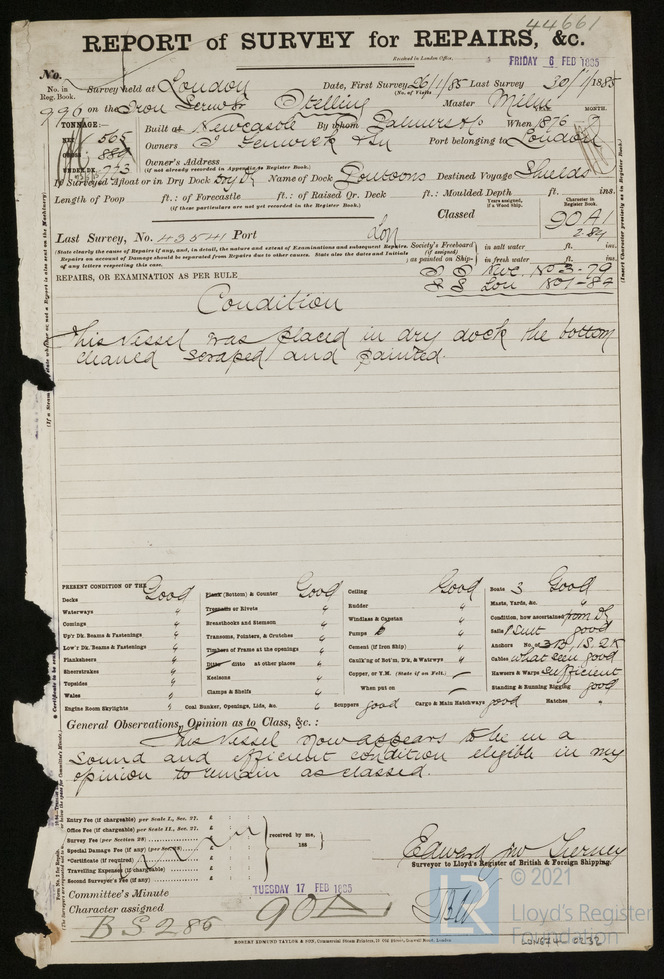 44661
REPORT of SURVEY for REPAIRS, &c.
Received in London Office, FRIDAY 6 FEB 1885
No.
No. in Reg. Book. Survey held at London Date, First Survey 26/1/85 Last Survey 30/1/1885
(No. of Visits)
996 on the Iron Screw Sr Stelling Master Milne
TONNAGE:— Built at Newcastle By whom Palmers & Co When 1876 MONTH. 9
NET 565 Owners J Fenwick & Sn Port belonging to London
GROSS 889 Owner's Address
(if not already recorded in Appendix to Register Book.)
UNDER DK. 743
If Surveyed Afloat or in Dry Dock Dry Dk Name of Dock Pontoons Destined Voyage Shields
Length of Poop ft.: of Forecastle ft.: of Raised Qr. Deck ft.: Moulded Depth ft. ins.
(if these particulars are not yet recorded in the Register Book.)
Years assigned, if a Wood Ship. Character in Register Book.
Classed 90A1
2.84
Last Survey, No. 43541 Port Lon
(State clearly the cause of Repairs if any, and, in detail, the nature and extent of Examinations and subsequent Repairs. Repairs on account of Damage should be separated from Repairs due to other causes. State also the dates and Initials of any letters respecting this case.
Society's Freeboard (if assigned) as painted on Ship- in salt water ft. ins.
in fresh water ft. ins.
REPAIRS, OR EXAMINATION AS PER RULE
Nwc. No 3-79
Lon No 1-84
Condition
This vessel was placed in dry dock the bottom
cleaned scraped and painted.
PRESENT CONDITION OF THE
Decks Good
Waterways "
Comings "
Up'r Dk. Beams & Fastenings "
Low'r Dk. Beams & Fastenings "
Planksheers "
Sheerstrakes "
Topsides "
Wales "
Engine Room Skylights "
Plank (Bottom) & Counter Good
Treenails or Rivets "
Breasthooks and Stemson "
Transoms, Pointers, & Crutches "
Timbers of Frame at the openings "
Ditto ditto at other places "
Keelsons "
Clamps & Shelfs "
Coal Bunker, Openings, Lids, &c. "
Ceiling Good
Rudder "
Windlass & Capstan "
Pumps "
Cement (if Iron Ship) "
Caulk'ng of Bot'm, D'k, & Watrwys "
Copper, or Y.M. (State if on Felt.)
When put on
Scuppers good Cargo & Main Hatchways good
Boats 3 Good
Masts, Yards, &c. "
Condition, how ascertained from Dk
Sails 1 Suit good
Anchors No. 3B, 1S, 2K
Cables what seen good
Hawsers & Warps sufficient
Standing & Running Rigging good
Hatches "
General Observations, Opinion as to Class, &c.:
This Vessel now appears to be in a
sound and efficient condition eligible in my
opinion to remain as classed.
Entry Fee (if chargeable) per Scale I., Sec. 27. £ : :
Office Fee (if chargeable) per Scale II., Sec. 27. £ : :
Survey Fee (per Section 28) £ : :
Special Damage Fee (if any) (per Section 28) £ : :
*Certificate (if required) £ : :
Travelling Expenses (if chargeable) £ : :
Second Surveyor's Fee (if any) £ : :
received by me,
188
Surveyor to Lloyd's Register of British & Foreign Shipping.
Committee's Minute TUESDAY 17 FEB 1885
Character assigned 90A
BS 2.85
ROBERT EDMUND TAYLOR & SON, Commercial Steam Printers, 19 Old Street, Goswell Road, London
© 2021
Lloyd's Register
Foundation